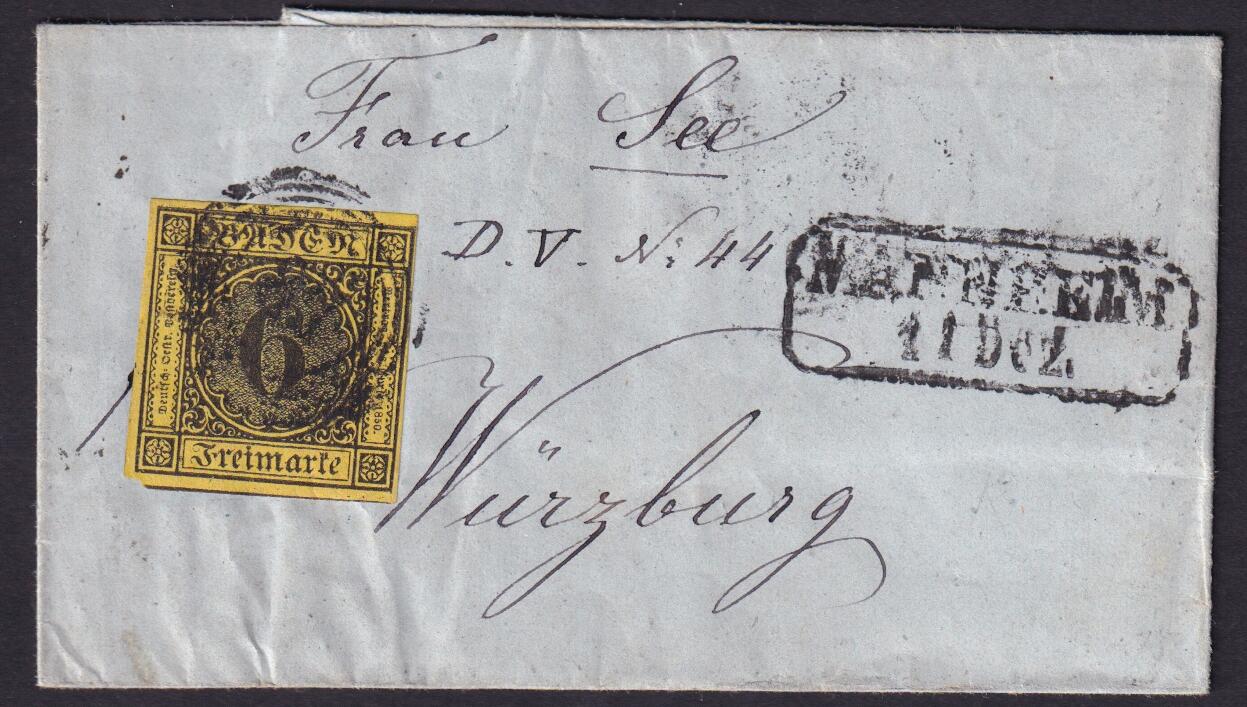 Frau See
D. V. No: 44
BADEN
Deutsch-Oestr. Postverein
6
1850.
Freimarke
MANNHEIM
11 Dez.
Würzburg